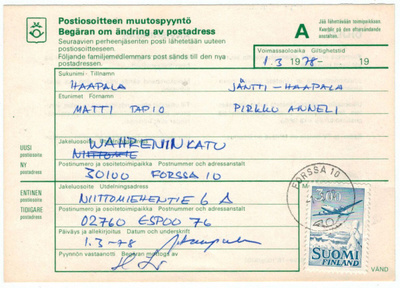 Postiosoitteen muutospyyntö
Begäran om ändring av postadress
A
Jää lähetettävään toimipaikkaan.
Seuraavien perheenjäsenten posti lähetetään uuteen
postiosoitteeseen.
Följande familjemedlemmars post sänds till den nya
postadressen.
Voimassaoloaika Giltighetstid
1.3 1978- 19
Sukunimi - Tillnamn
HAAPALA JÄNTTI-HAAPALA
Etunimet Förnamn
MATTI TAPIO PIRKKO ANNELI
Jakeluosoite
WAHRENINKATU
UUSI
postiosoite
NIITTOMIE
NY
postadress
Postinumero ja osoitetoimipaikka Postnummer och adressanstalt
30100 FORSSA 10
ENTINEN
postiosoite
Jakeluosoite Utdelningsadress
NIITTOMIEHENTIE 6 A
TIDIGARE
postadress
Postinumero ja osoitetoimipaikka Postnummer och adressanstalt
02760 ESPOO 76
Päiväys ja allekirjoitus Datum och underskrift
1.3 -78
Pyynnön vastaanotti Begäran mottogs av
FORSSA 10
SUOMI
FINLAND
VÄND